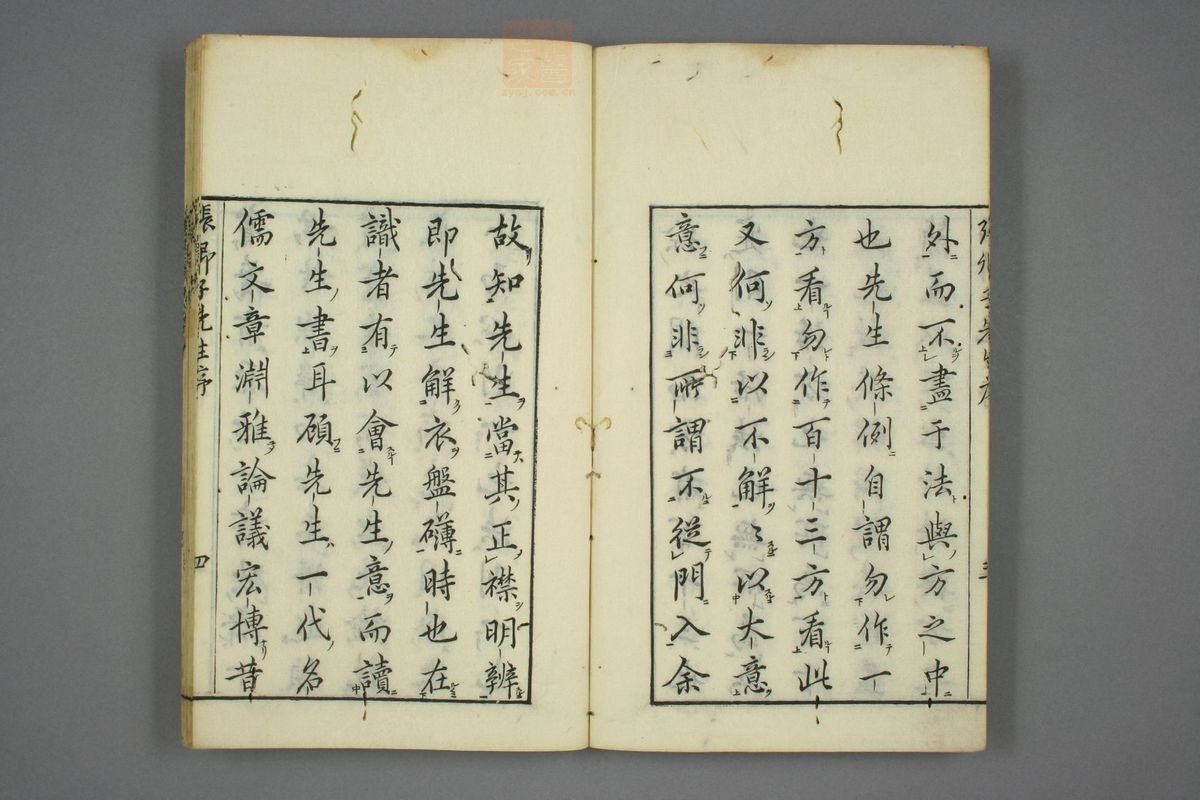 外而不盡于法與方之中
也先生條例自謂勿作一
方看勿作百十三方看此
又何非以不解〻以大意
意何非所謂不從門入余
故知先生當其正襟明辨
即先生解衣盤礴時也在
識者有以會先生意而讀
先生書耳顧先生一代名
儒文章淵雅論議宏博昔
張卿子先生序
四
zysj.com.cn